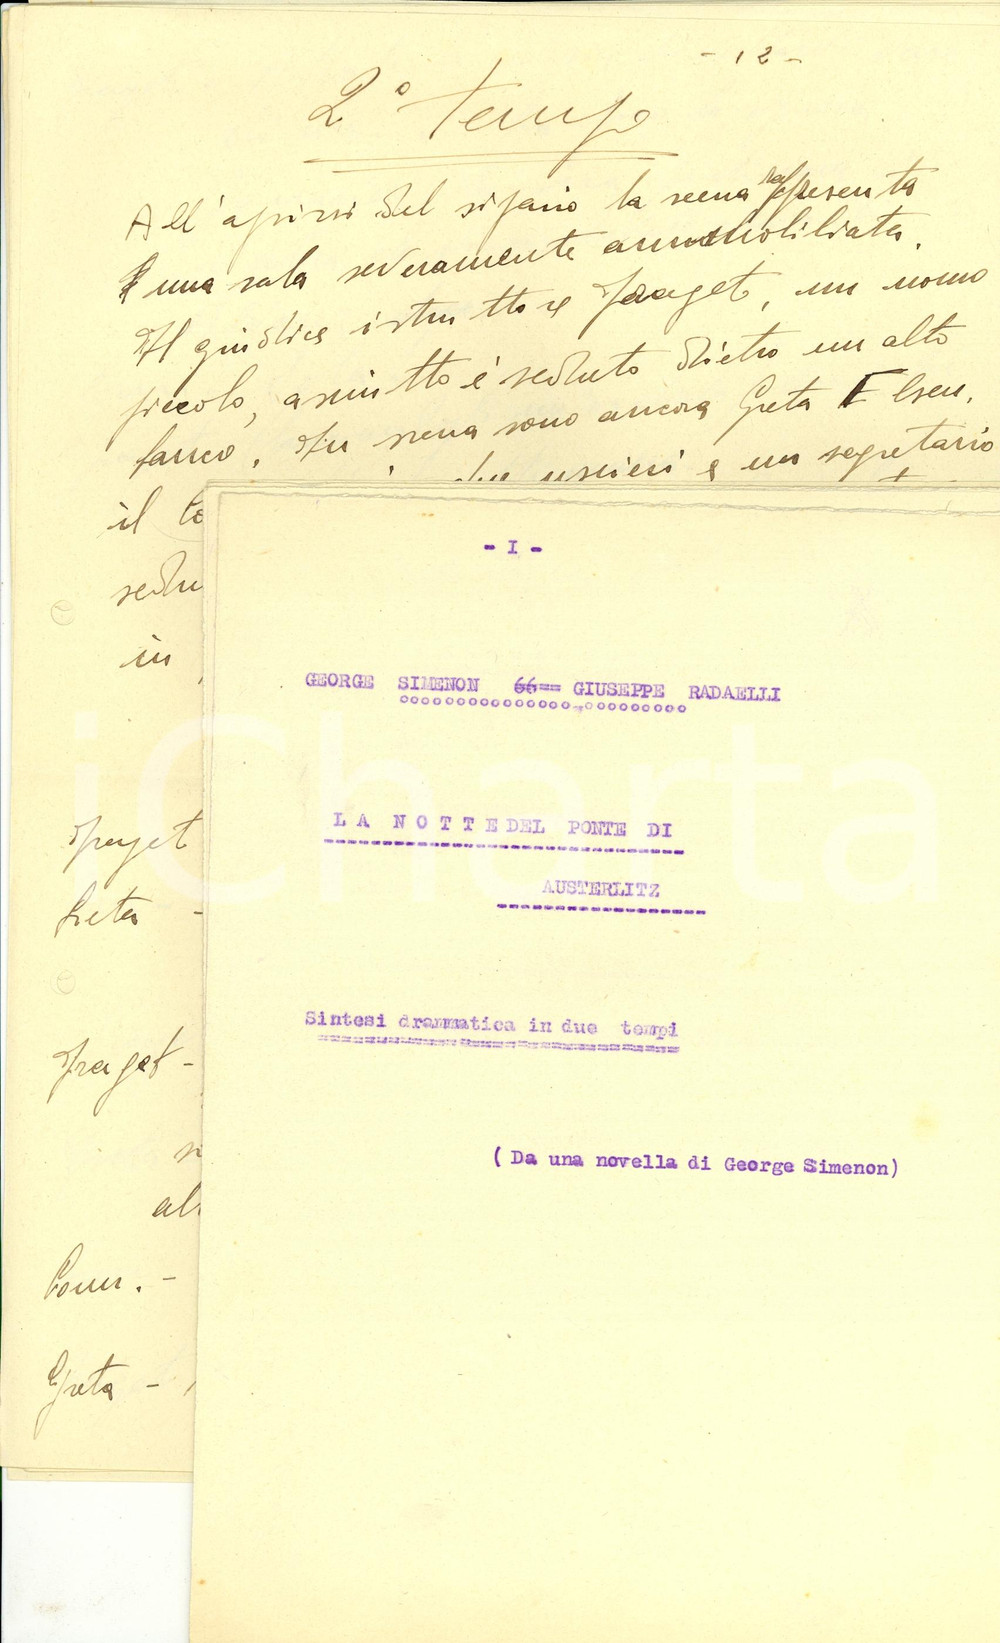 - 12 -
2° Tempo
All'aprirsi del sipario la scena rappresenta
una sala severamente ammobiliata.
Il giudice istruttore Fraget, un uomo
piccolo, asciutto è seduto dietro un alto
banco. In scena sono ancora Greta Elsen,
due uscieri e un segretario
il
sedu
in
Fraget
Greta -
Fraget -
al
Com. -
Greta -
- I -
GEORGE SIMENON 66== GIUSEPPE RADAELLI
L A N O T T E DEL PONTE DI
AUSTERLITZ
Sintesi drammatica in due tempi
( Da una novella di George Simenon)
iCharta